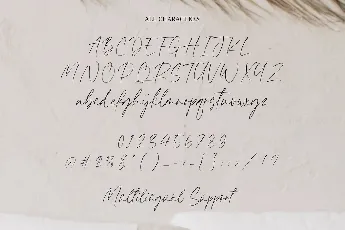 ALL CHARACTERS
ABCDEFGHIJKL
MNOPQRSTUVWXYZ
abcdefghijklmnopqrstuvwxyz
0123456789
Multilingual Support